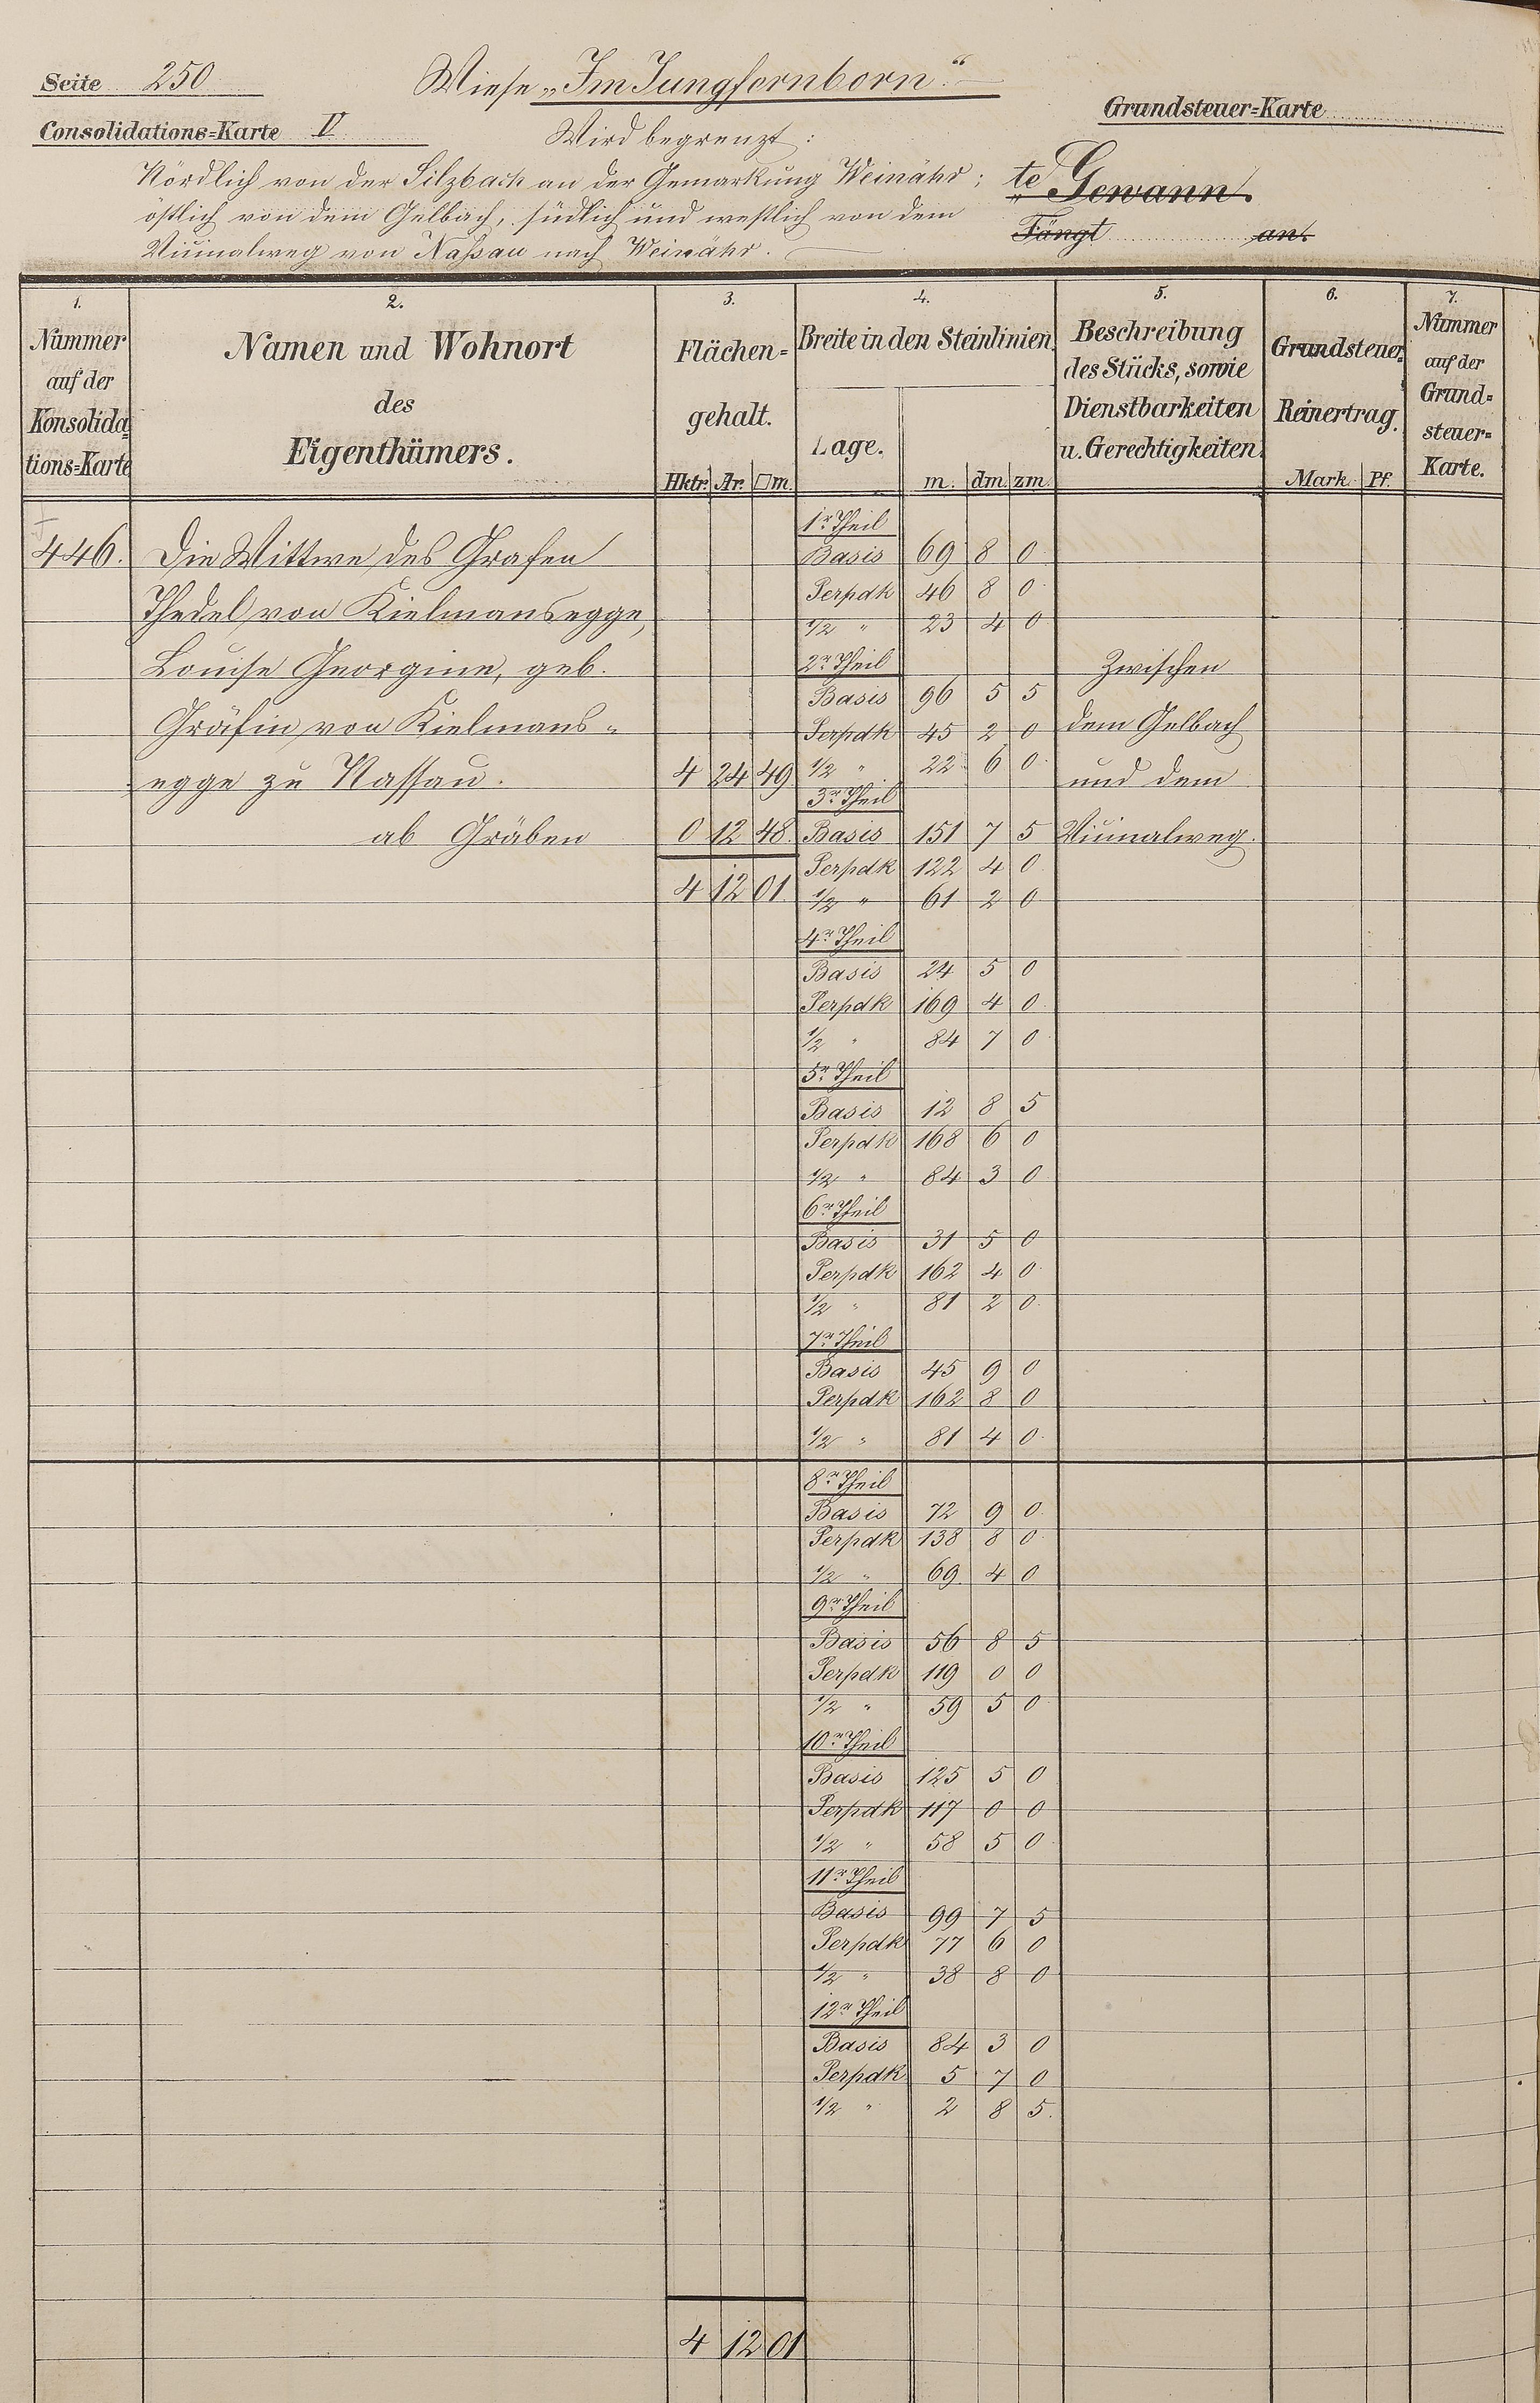 Seite 250
Wiese „Im Jungfernborn“
Grundsteuer=Karte
Consolidations=Karte V
Wird begrenzt:
Nördlich von der Silzbach an der Gemarkung Weinähr;
te Gewann.
östlich von dem Gelbach, südlich und westlich von dem
Fängt an.
Vicinalweg von Naßau nach Weinähr.
1. 2. 3. 4. 5. 6. 7.
Nummer auf der Konsolida=tions=Karte
Namen und Wohnort des Eigenthümers.
Flächen=gehalt.
Hktr. Ar. □m.
Breite in den Steinlinien.
Lage. m. dm. zm.
Beschreibung des Stücks, sowie Dienstbarkeiten u. Gerechtigkeiten.
Grundsteuer=Reinertrag.
Mark. Pf.
Nummer auf der Grund=steuer=Karte.
1r. Theil
446. Die Wittwe des Grafen Basis 69 8 0
Perpdk 46 8 0
Thedel von Kielmansegge,
1/2 " 23 4 0
Louise Georgine, geb. 2r. Theil Zwischen
Basis 96 5 5
Gräfin von Kielmans= Perpdk 45 2 0 dem Gelbach
egge zu Nassau. 4 24 49 1/2 " 22 6 0 und dem
3r. Theil
ab Gräben 0 12 48. Basis 151 7 5 Vicinalweg.
Perpdk 122 4 0
4 12 01. 1/2 " 61 2 0
4r. Theil
Basis 24 5 0
Perpdk 169 4 0
1/2 " 84 7 0
5r. Theil
Basis 12 8 5
Perpdk 168 6 0
1/2 " 84 3 0
6r. Theil
Basis 31 5 0
Perpdk 162 4 0
1/2 " 81 2 0
7r. Theil
Basis 45 9 0
Perpdk 162 8 0
1/2 " 81 4 0
8r. Theil
Basis 72 9 0
Perpdk 138 8 0
1/2 " 69 4 0
9r. Theil
Basis 56 8 5
Perpdk 119 0 0
1/2 " 59 5 0
10r. Theil
Basis 125 5 0
Perpdk 117 0 0
1/2 " 58 5 0
11r. Theil
Basis 99 7 5
Perpdk 77 6 0
1/2 " 38 8 0
12r. Theil
Basis 84 3 0
Perpdk 5 7 0
1/2 " 2 8 5.
4 12 01